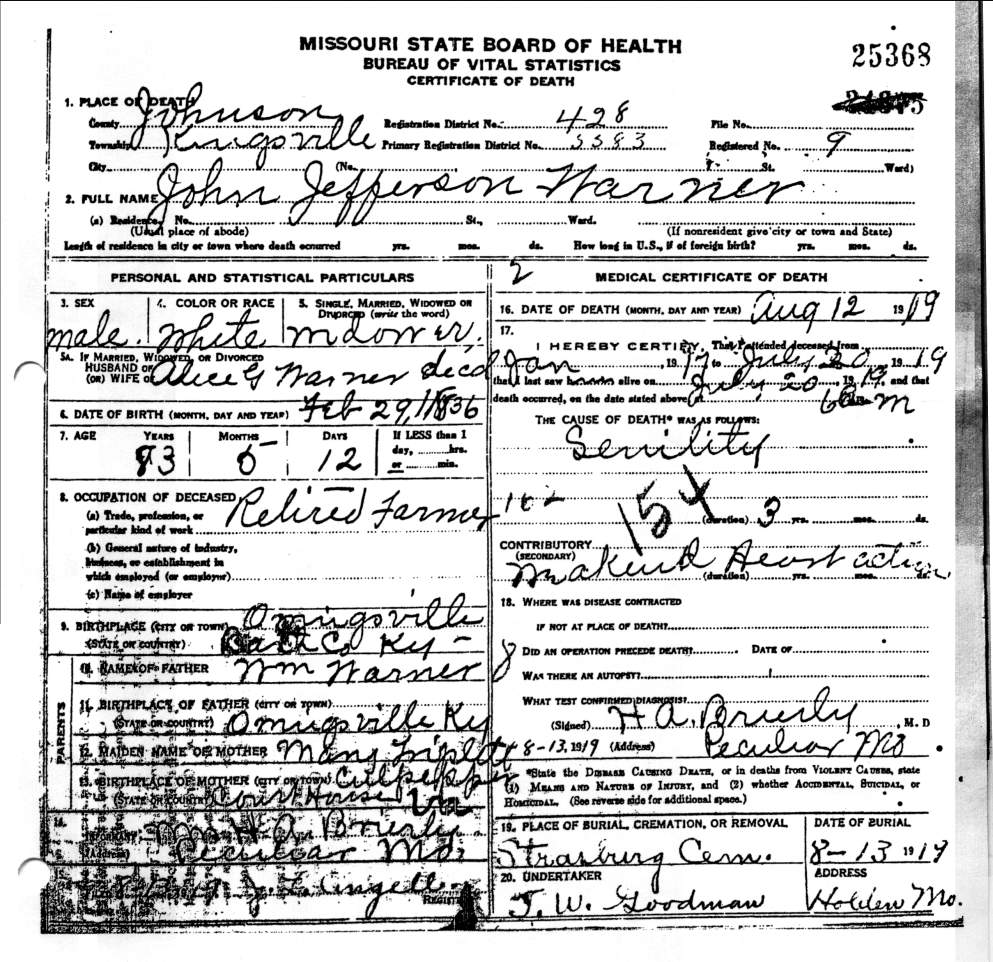 MISSOURI STATE BOARD OF HEALTH
BUREAU OF VITAL STATISTICS
CERTIFICATE OF DEATH
25368
1. PLACE OF DEATH
County Johnson Registration District No. 428 File No.
Township Kingsville Primary Registration District No. 5583 Registered No. 9
City (No. St. Ward)
2. FULL NAME John Jefferson Warner
(a) Residence, No. St., Ward.
(Usual place of abode) (If nonresident give city or town and State)
Length of residence in city or town where death occurred yrs. mos. ds. How long in U.S., if of foreign birth? yrs. mos. ds.
PERSONAL AND STATISTICAL PARTICULARS
3. SEX 4. COLOR OR RACE 5. SINGLE, MARRIED, WIDOWED OR
DIVORCED (write the word)
male. White widower.
5A. IF MARRIED, WIDOWED, OR DIVORCED
HUSBAND OF
(OR) WIFE OF Alice G Warner decd
6. DATE OF BIRTH (MONTH, DAY AND YEAR) Feb 29, 1836
7. AGE YEARS MONTHS DAYS If LESS than 1
day, hrs.
or min.
83 5 12
8. OCCUPATION OF DECEASED Retired Farmer
(a) Trade, profession, or
particular kind of work
(b) General nature of industry,
business, or establishment in
which employed (or employer)
(c) Name of employer
9. BIRTHPLACE (CITY OR TOWN) Owingsville
(STATE OR COUNTRY) Bath Co Ky -
PARENTS
10. NAME OF FATHER Wm Warner
11. BIRTHPLACE OF FATHER (CITY OR TOWN)
(STATE OR COUNTRY) Owingsville Ky
12. MAIDEN NAME OF MOTHER Mary Triplett
13. BIRTHPLACE OF MOTHER (CITY OR TOWN) Culpepper
(STATE OR COUNTRY) Court House Va
14.
INFORMANT H A. Brierly
(Address) Peculiar Mo.
15.
REGISTRAR
2
MEDICAL CERTIFICATE OF DEATH
16. DATE OF DEATH (MONTH, DAY AND YEAR) Aug 12 1919
17.
I HEREBY CERTIFY, That I attended deceased from
Jan, 1917 to July 20, 1919
that I last saw alive on July 20, 1919, and that
death occurred, on the date stated above, at m
THE CAUSE OF DEATH* WAS AS FOLLOWS:
Senility
162
154
(duration) 3 yrs. mos. ds.
CONTRIBUTORY
(SECONDARY)
Weakened Heart action
(duration) yrs. mos. ds.
18. WHERE WAS DISEASE CONTRACTED
IF NOT AT PLACE OF DEATH?
8
DID AN OPERATION PRECEDE DEATH? DATE OF
WAS THERE AN AUTOPSY?
WHAT TEST CONFIRMED DIAGNOSIS?
(Signed) H A. Brierly, M. D
8-13, 1919 (Address) Peculiar Mo
*State the DISEASE CAUSING DEATH, or in deaths from VIOLENT CAUSES, state
(1) MEANS AND NATURE OF INJURY, and (2) whether ACCIDENTAL, SUICIDAL, or
HOMICIDAL. (See reverse side for additional space.)
19. PLACE OF BURIAL, CREMATION, OR REMOVAL DATE OF BURIAL
Strasburg Cem. 8-13 1919
20. UNDERTAKER ADDRESS
T. W. Goodman Holden Mo.